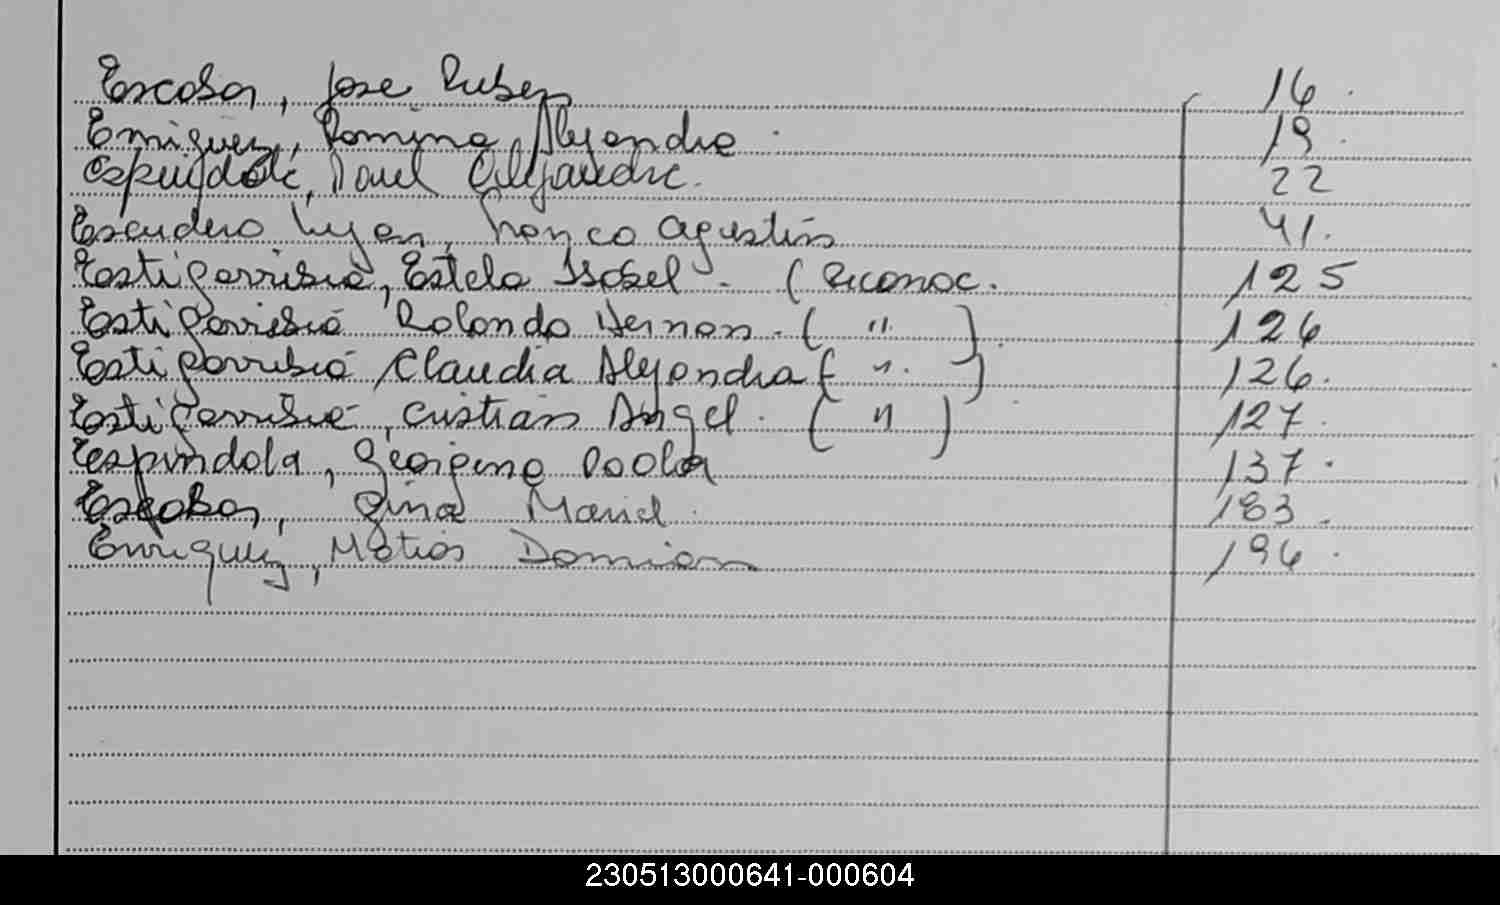 Escobar, Jose Ruben 16.
Enriquez, Romina Alejandra. 19.
Espindola, Alejandra. 22
Escudero Lujan, Franco Agustin 41.
Estigarribia, Estela Isabel. (Reconoc. 125
Estigarribia Rolando Hernan. ( " ). 126
Estigarribia Claudia Alejandra ( " ) 126.
Estigarribia, Cristian Angel. ( " ) 127.
Espindola, Georgina Paola 137.
Escobar, Gina Mariel. 183.
Enriquez, Matias Damian 196.
230513000641-000604